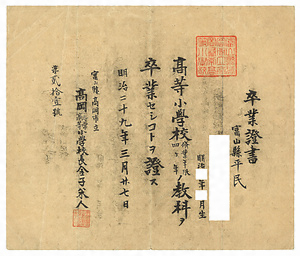 卒業證書
富山縣平民
明治 年 月生
高等小學校修業年限四ヶ年ノ教科ヲ
卒業セシコトヲ證ス
明治二十九年三月廿七日
富山縣高岡市立
高岡高等小學校長金子
第貳拾壹號